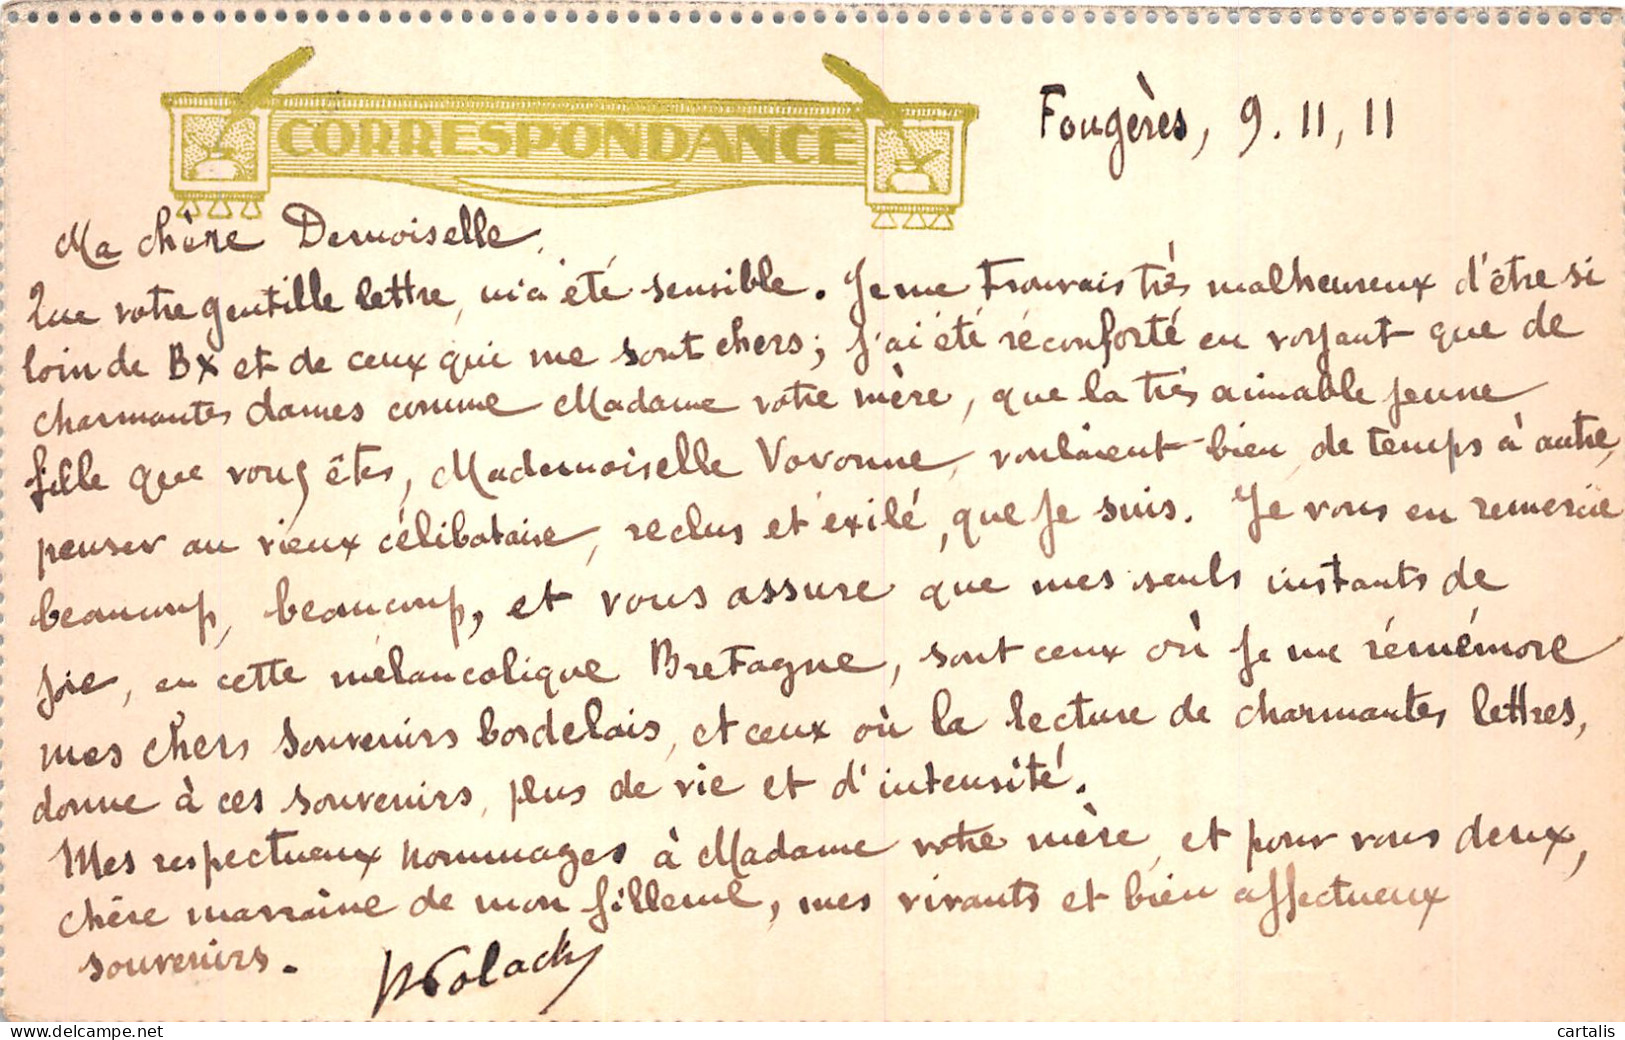 CORRESPONDANCE
Fougères, 9.11,11
Ma chère Demoiselle,
Que votre gentille lettre, m'a été sensible. Je me trouvais très malheureux d'être si
loin de Bx et de ceux qui me sont chers; j'ai été réconforté en voyant que de
charmantes dames comme Madame votre mère, que la très aimable jeune
fille que vous êtes, Mademoiselle Vovonne, voulaient bien de temps à autre,
penser au vieux célibataire, reclus et éxilé, que je suis. Je vous en remercie
beaucoup, beaucoup, et vous assure que mes seuls instants de
joie, en cette mélancolique Bretagne, sont ceux où je me rémémore
mes chers souvenirs bordelais, et ceux où la lecture de charmantes lettres,
donne à ces souvenirs, plus de vie et d'intensité.
Mes respectueux hommages à Madame votre mère, et pour vous deux,
chère marraine de mon filleul, mes vivants et bien affectueux
souvenirs.
Polack
cartalis